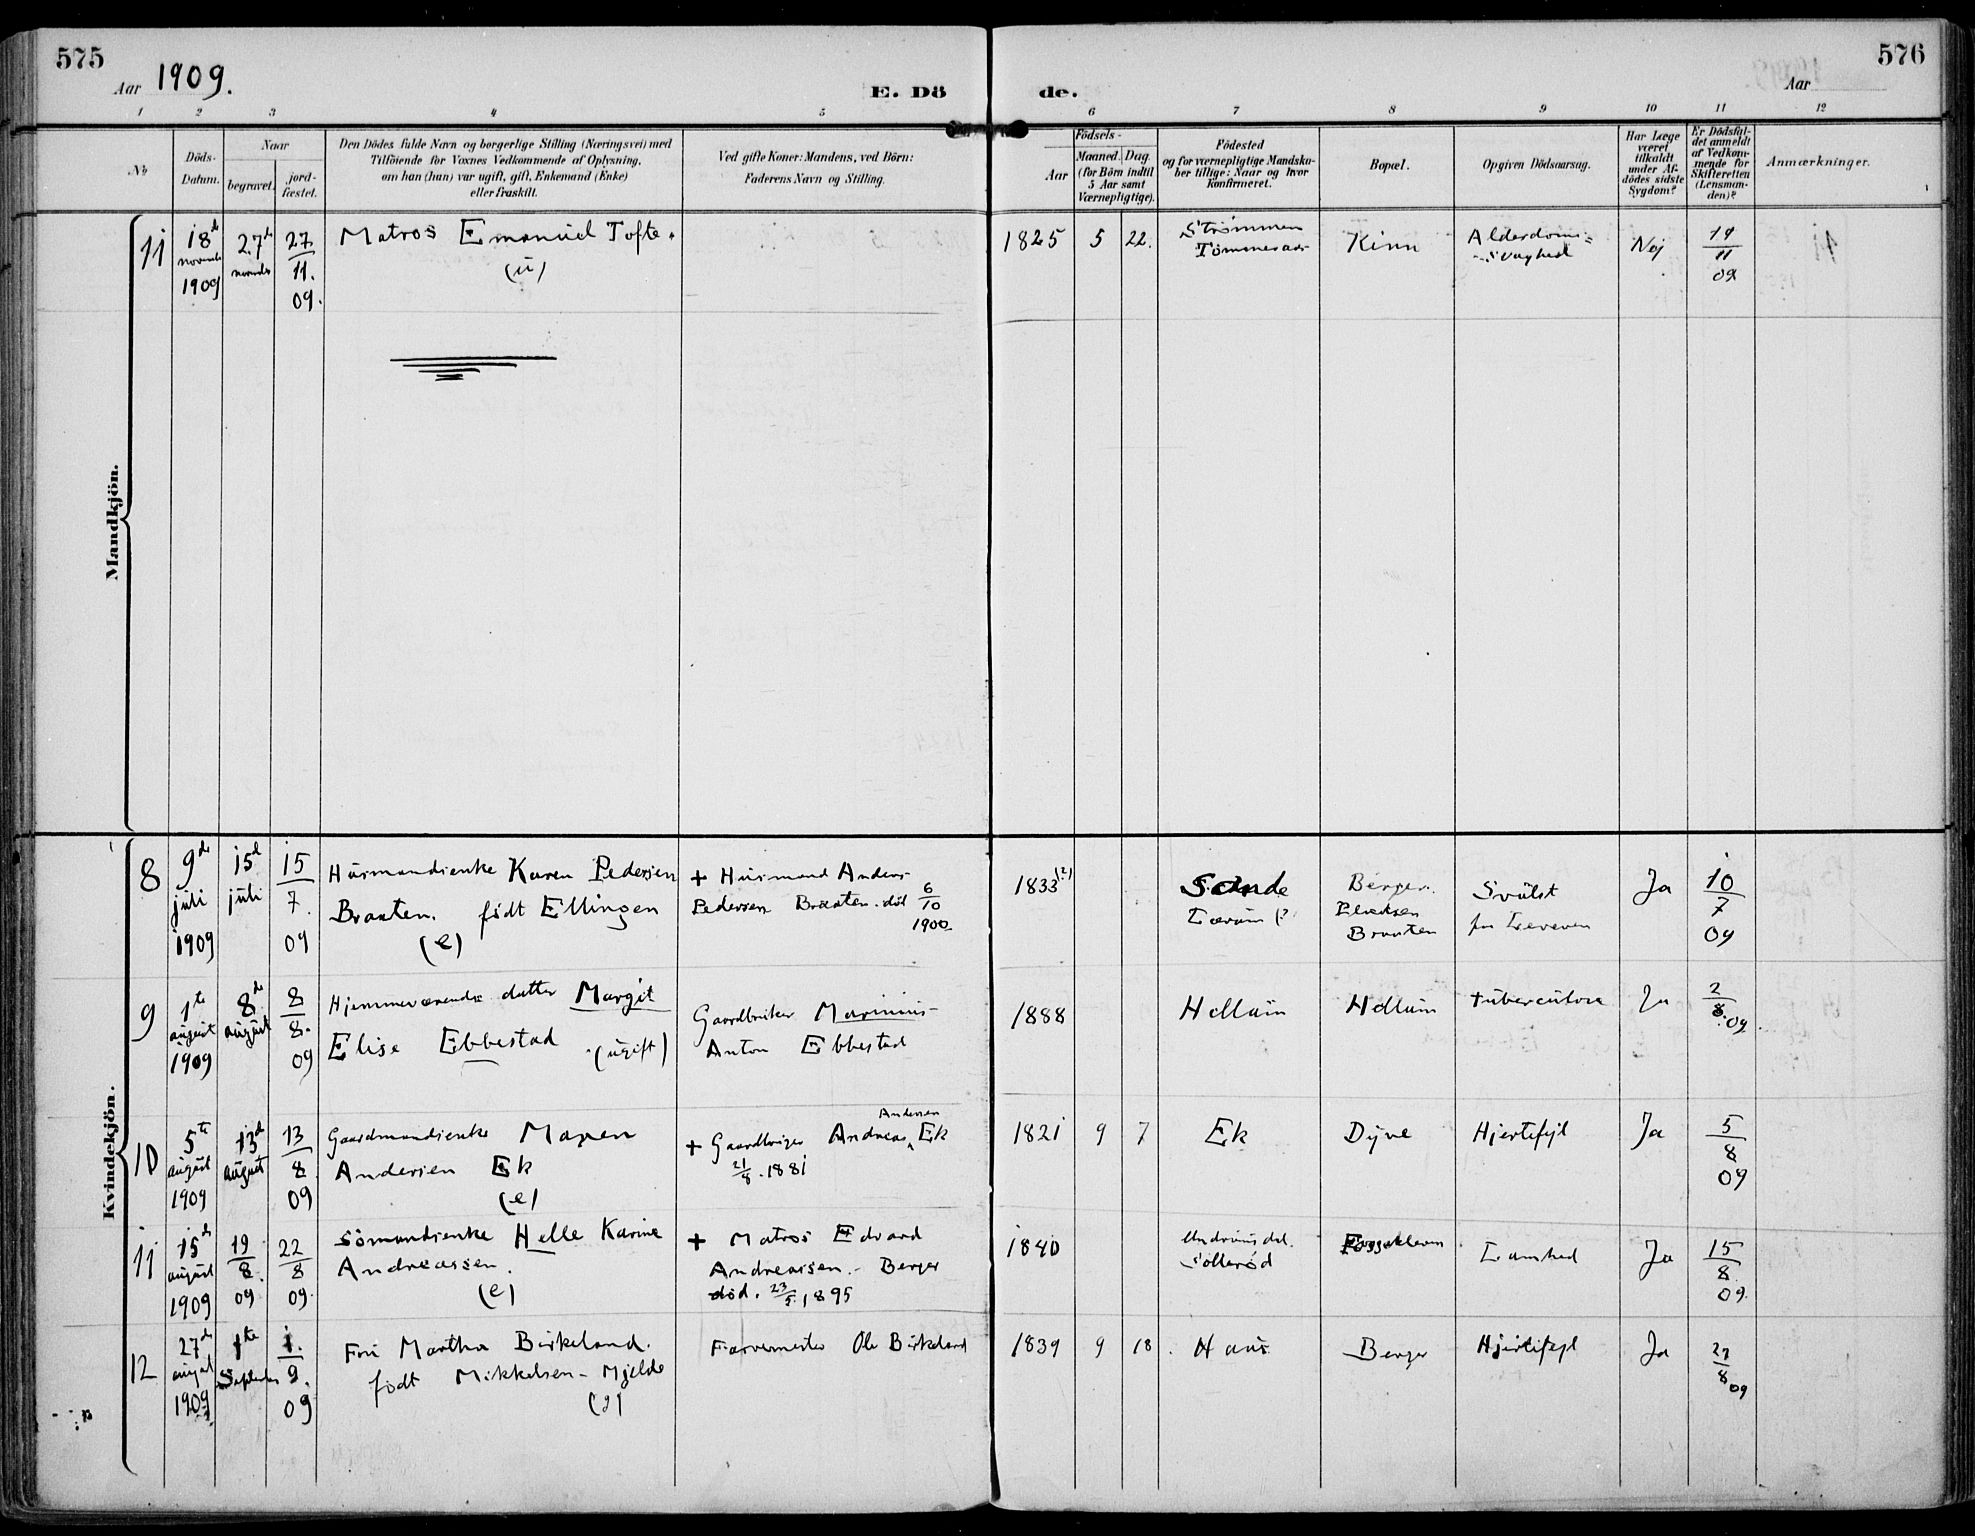 575
Aar 1909.
E. Dö
de.
576
Aar
1 2 3 4 5 6 7 8 9 10 11 12
No
Döds-
Datum.
Naar
begravet.
jord-
fæstet.
Den Dödes fulde Navn og borgerlige Stilling (Næringsvei) med
Tilföiende for Voxnes Vedkommende af Oplysning,
om han (hun) var ugift, gift, Enkemand (Enke)
eller fraskilt.
Ved gifte Koner: Mandens, ved Börn:
Faderens Navn og Stilling.
Födsels-
Aar
Maaned. Dag.
(for Börn indtil
5 Aar samt
Værnepligtige).
Födested
og for værnepligtige Mandska-
ber tillige: Naar og hvor
konfirmeret.
Bopæl.
Opgiven Dödsaarsag.
Har Læge
været
tilkaldt
under Af-
dödes sidste
Sygdom?
Er Dödsfal-
det anmeldt
af Vedkom-
mende for
Skifteretten
(Lensman-
den)?
Anmærkninger.
Mandkjön.
11
18de
novemb
1909
27de
novemb
27
11.
09.
Matros Emanuel Tofte.
(u)
1825 5 22.
Strømmen
Tømmeraas
Kinn
Alderdoms=
svaghed
Nej
19
11
09
Kvindekjön.
8
9de
juli
1909
15de
juli
15
7.
09
Husmandsenke Karen Pedersen
Braaten. født Ellingen
(e)
+ Husmand Anders
Pedersen Braaten. død 6/10
1900
1833 (?)
Sande
(?
Berger.
Braaten
Svulst
Ja
10
7
09
9
1te
august
1909
8de
august
8
8.
09
Hjemmeværende datter Margit
Elise Ebbestad (ugift)
Gaardbruker Marinius
Anton Ebbestad
1888
Hellum
Hellum
tuberculose
Ja
2
8. 09
10
5te
august
1909
13de
august
13
8
09
Gaardmandsenke Maren
Andersen Ek
(e)
Andersen
+ Gaardbruger Andreas Ek
21/8. 1881
1821 9 7
Ek
Dyve
Hjertefejl
Ja
5
8
09
11
15de
august
1909
19
8.
09
22
8
09.
Sømandsenke Helle Karine
Andreassen.
(e)
+ Matros Edvard
Andreassen. - Berger
død. 23/5. 1895
1840
Sollerød
Lamhed
Ja
15
8.
09.
12
27de
august
1909
1te
September
1.
9.
09
Fru Martha Birkeland.
født Mikkelsen - Mjelde
(g)
Farvermester Ole Birkeland
1839 9 18.
Haus
Berger
Hjertefejl
Ja
27
8 09